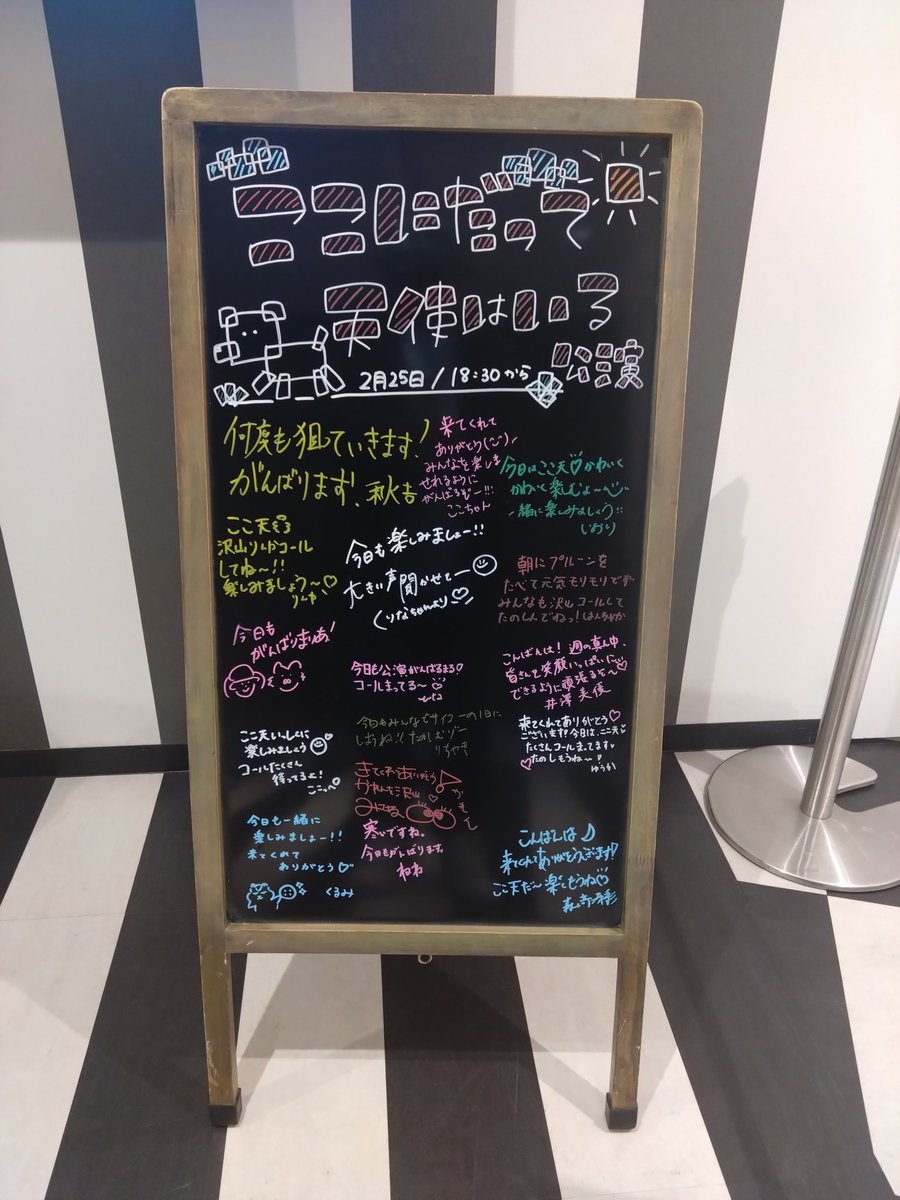 ここにだって
天使はいる
公演
2月25日/18:30から
何度も狙っていきます!
がんばります!、秋吉
来てくれて
ありがとう
みんなを楽しま
せれるように
がんばるぞー!!!
ここちゃん
今日はここ天♡かわいく
かわいく楽しむよ〜
一緒に楽しみましょう
いおり
ここ天
沢山りんかコール
してね〜!!
楽しみましょう〜♡
りんか
今日も楽しみましょー!!
大きい声聞かせてー
くりなちゃんより♡
朝にプルーンを
たべて元気モリモリです
みんなも沢山コールして
たのしんでねっ!はんちゃか
今日も
がんばりまりあ!
今日も公演がんばるまる♡
コールまってる〜
こんばんは!週の真ん中、
皆さんで笑顔いっぱいに
できるように頑張るぞ〜♡
井澤美優
ここ天いっしょに
楽しみましょう
コールたくさん
待ってるよ!
ここっぺ
今日もみんなでサイコーの1日に
しようね!!たのしむゾー
りのあ
来てくれてありがとう♡
ございます!今日は、ここ天
たくさんコールまってます
♡たのしもうね〜
ゆうか
きてくれてありがとう
かれんも沢山
みにきて
かれん
今日も一緒に
楽しみましょー!!
来てくれて
ありがとう♡
くるみ
寒いですね。
今日もがんばります。
ねね
こんばんは♪
来てくれてありがとうございます!
ここ天だ〜楽しもうね♡